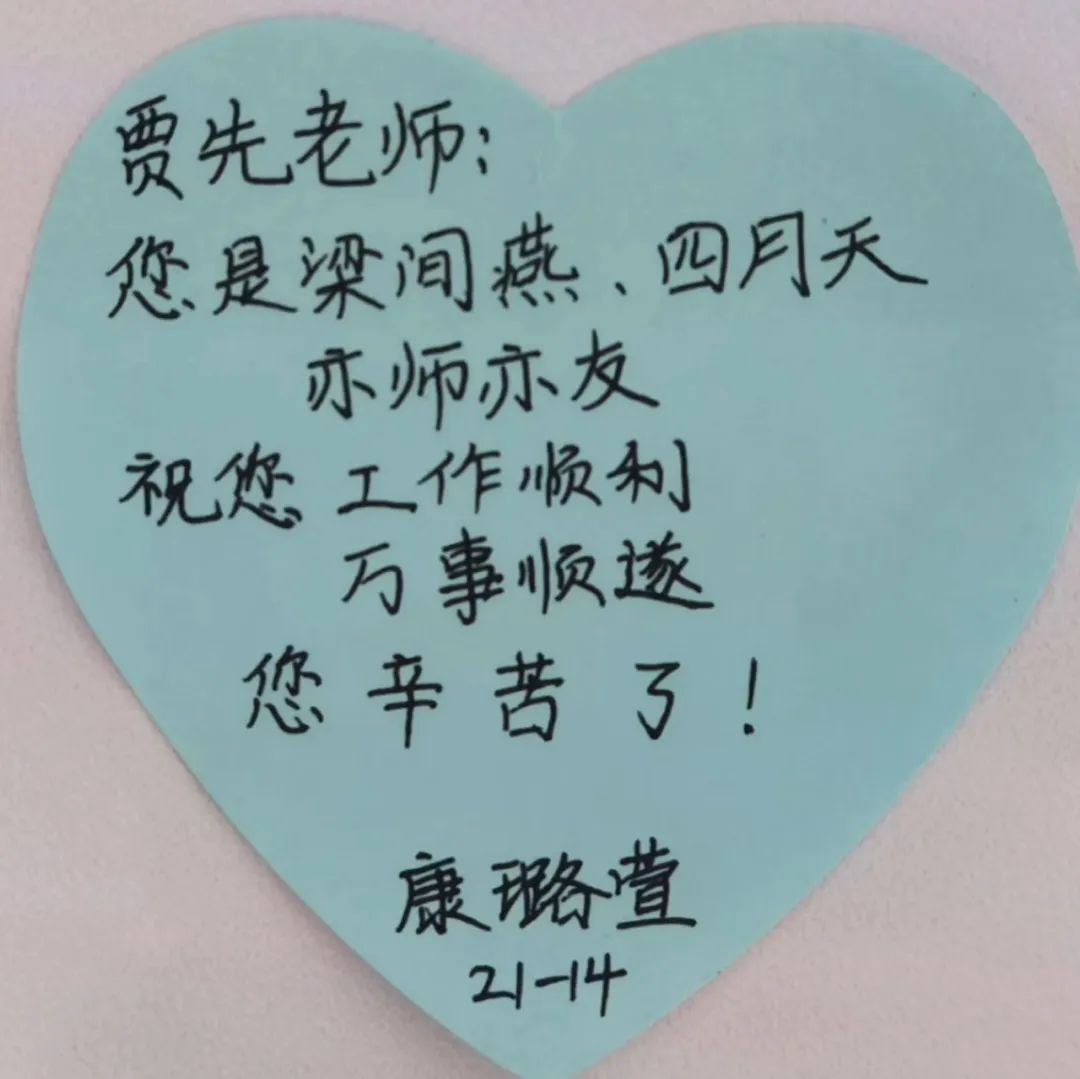 贾先老师:
您是梁间燕、四月天
亦师亦友
祝您 工作顺利
万事顺遂
您辛苦了!
康璐萱
21-14